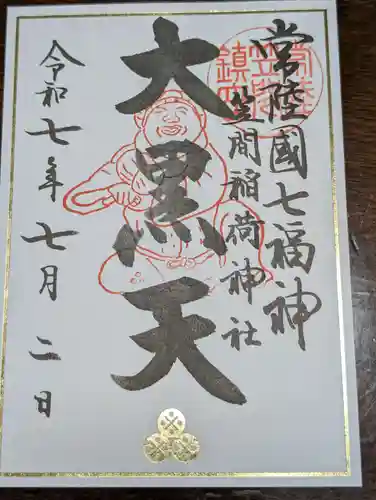 常陸國七福神
笠間稲荷神社
大黒天
令和七年七月二日